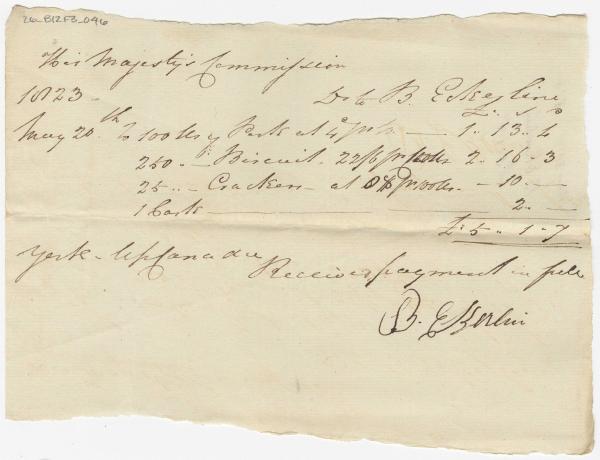 26-B12F3-046
His Majesty's Commission
1823 - Dr to B. Eckerline
£ .. S .. d
May 20th To 100 lbs of Pork at 4d pr lb — 1 .. 13 .. 4
250 .. " Biscuit 22/6 pr 100 lbs. 2 .. 16 - 3
25 .. - Crackers - at pr 100 lbs. - 10 .. —
1 Cask — 2 .. —
£ 5 .. 1 - 7
York - Up Canada
Received payment in full
B. Ekerlin